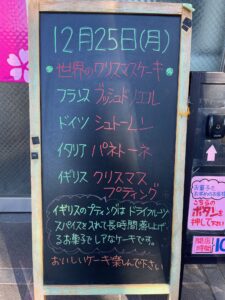 12月25日(月)
世界のクリスマスケーキ
フランス ブッシュドノエル
ドイツ シュトーレン
イタリア パネトーネ
イギリス クリスマス
プディング
イギリスのプディングは ドライフルーツ
スパイスを入れて長時間蒸し上げ
るお菓子でしてなケーキです。
おいしいケーキ楽しんで下さい
お菓子で
こちらの
ボタンを
押して下さい
開店時間